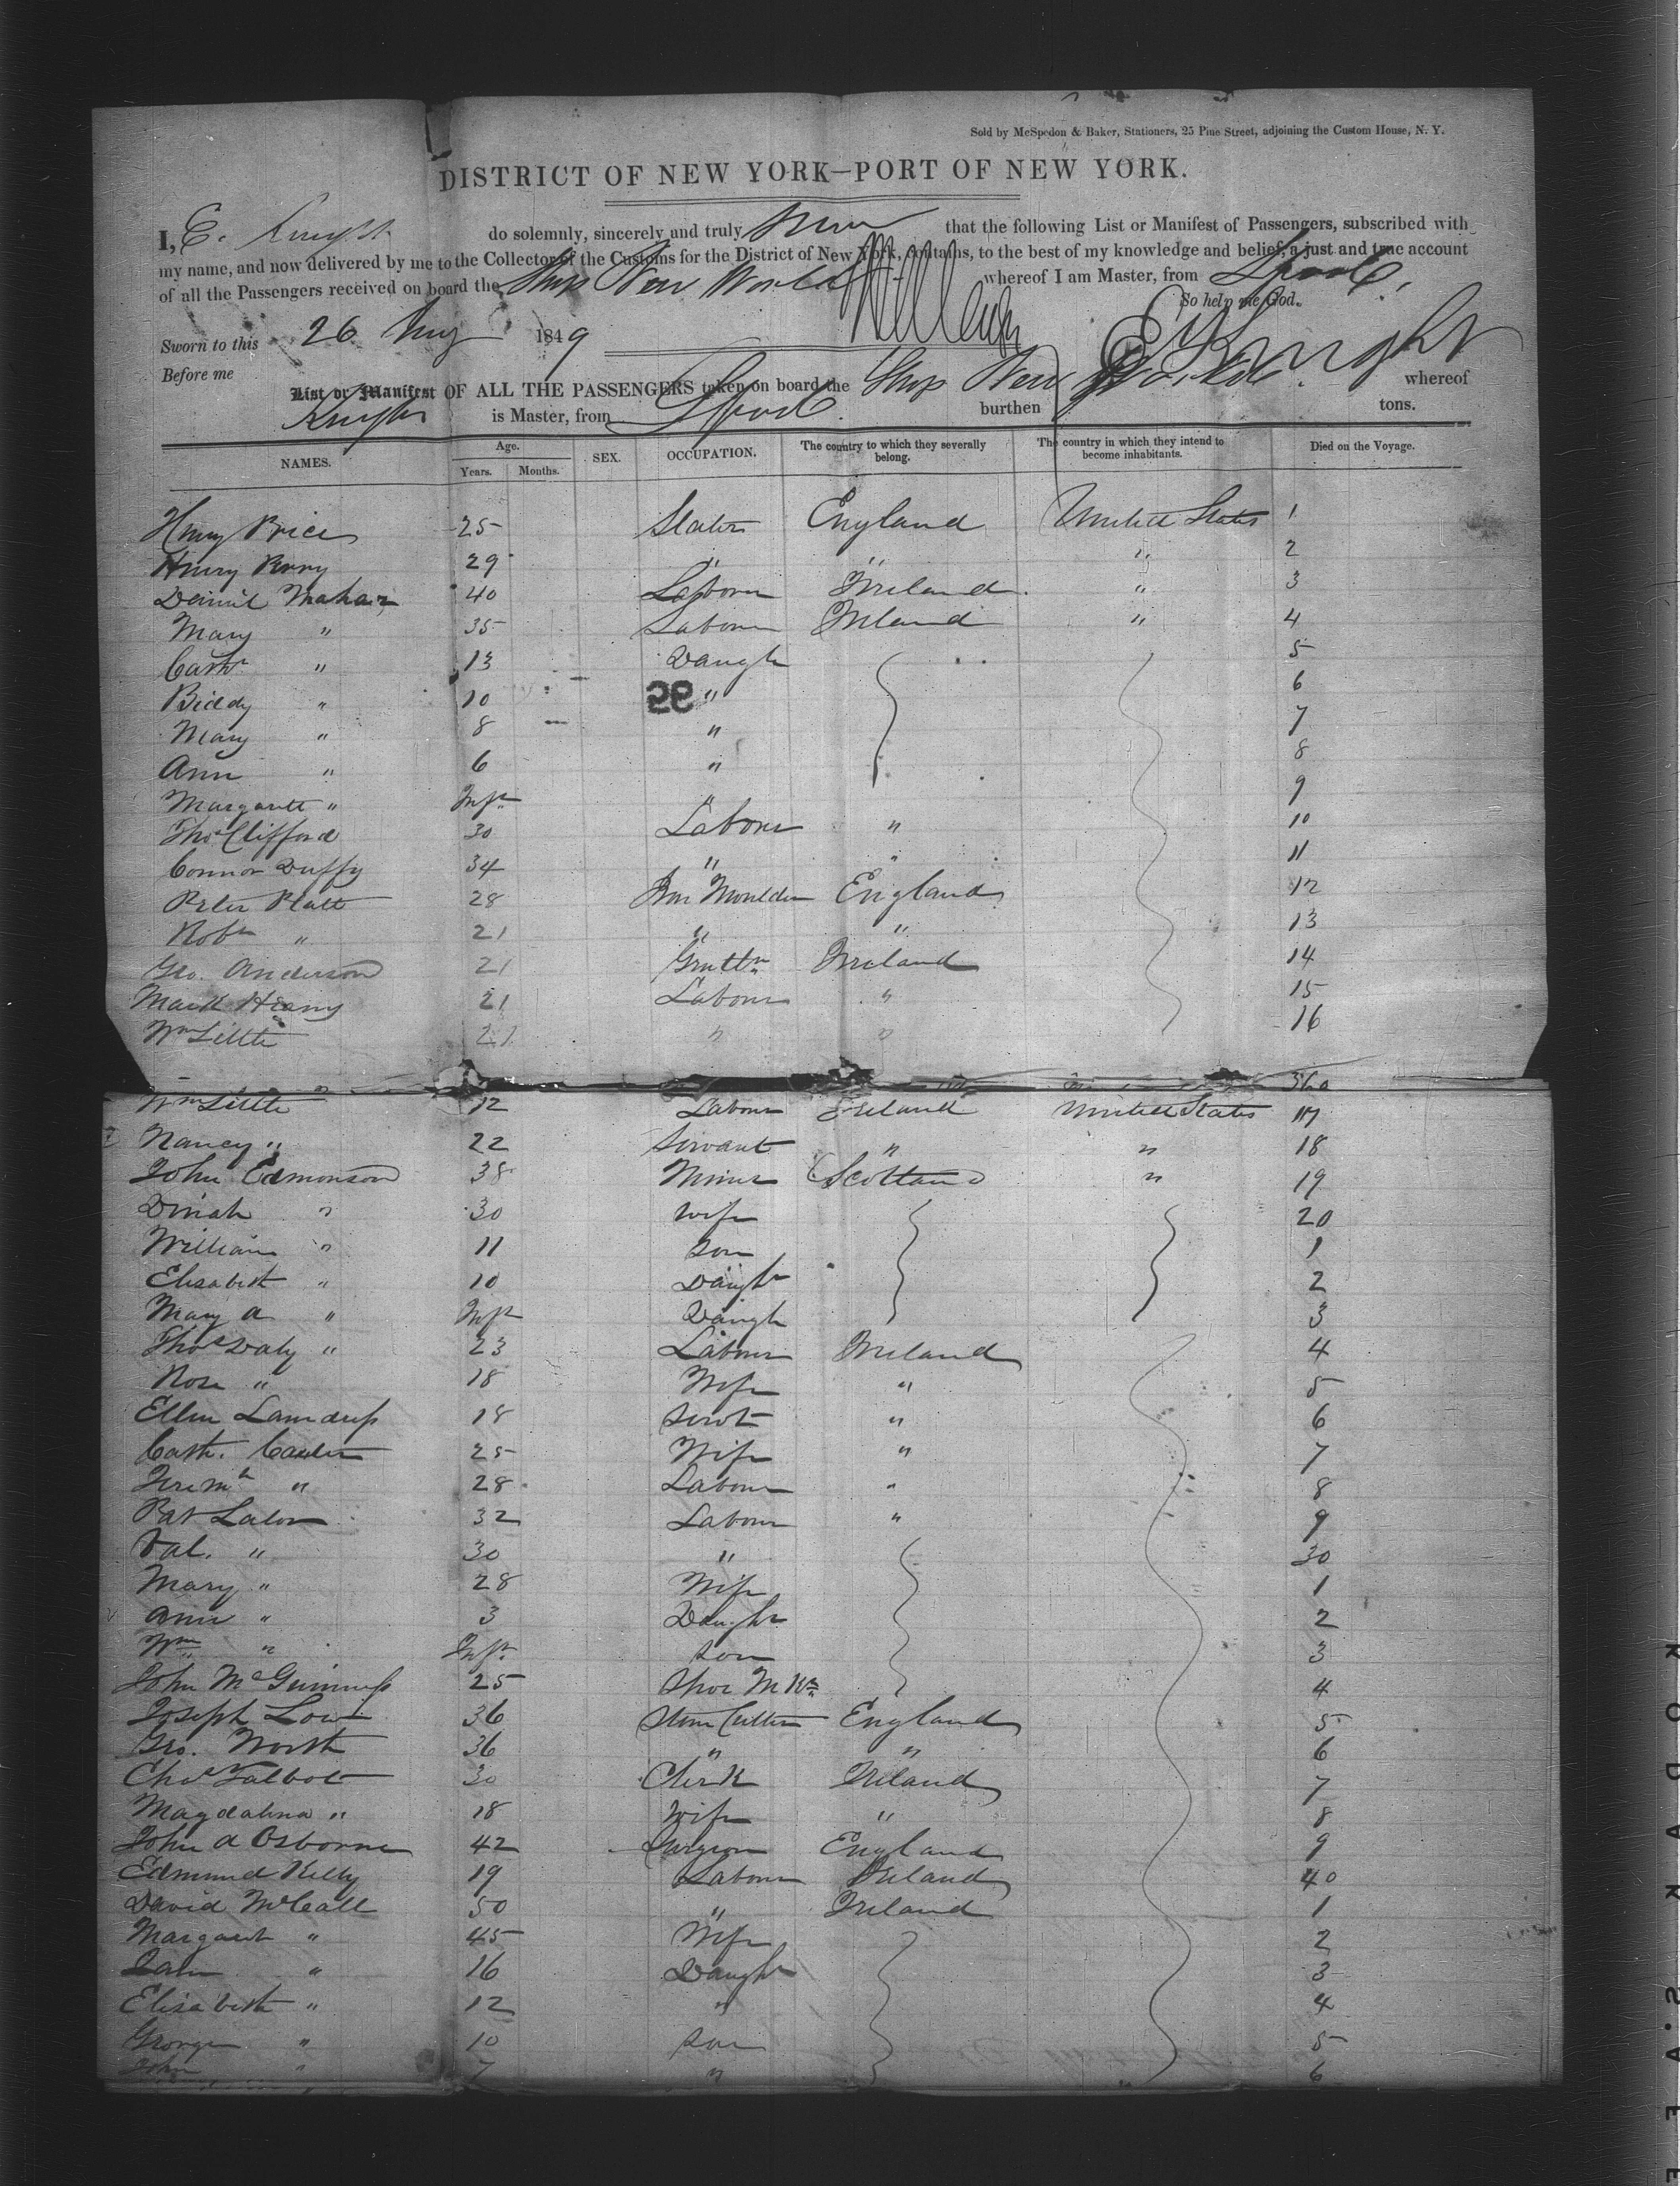 Sold by McSpedon & Baker, Stationers, 25 Pine Street, adjoining the Custom House, N. Y.
DISTRICT OF NEW YORK—PORT OF NEW YORK.
I, E. Knight do solemnly, sincerely and truly swear that the following List or Manifest of Passengers, subscribed with
my name, and now delivered by me to the Collector of the Customs for the District of New York, contains, to the best of my knowledge and belief, a just and true account
of all the Passengers received on board the Ship New World whereof I am Master, from Lpool,
So help me God.
Sworn to this 26 Aug 1849
E Knight
Before me
List or Manifest OF ALL THE PASSENGERS taken on board the Ship New World whereof
Knight is Master, from Lpool burthen tons.
NAMES. Age. Years. Months. SEX. OCCUPATION. The country to which they severally belong. The country in which they intend to become inhabitants. Died on the Voyage.
Henry Price 25 Slater England United States 1
Henry Perry 29 " " " 2
Daniel Mahar 40 Labourer Ireland " 3
Mary " 35 Labourer Ireland " 4
Cathn " 13 Daugh 5
Biddy " 10 " 6
Mary " 8 " 7
Ann " 6 " 8
Margarett " Inft " 9
Thos Clifford 30 Labour " 10
Connor Duffy 34 " " 11
Peter Platt 28 Iron Moulder England 12
Robt " 21 " " 13
Geo. Anderson 21 Ireland 14
Mark Heany 21 Labour " 15
Wm Little 21 " " 16
Wm Little " 12 Labour Ireland United States 17
Nancy " 22 Servant " " 18
John Edmonson 38 Miner Scotland " 19
Dinah " 30 Wife 20
William " 11 Son 1
Elisabeth " 10 Daughr 2
Mary A " Inft Daugh 3
Thos Daly " 23 Labour Ireland 4
Rose " 18 Wife " 5
Ellen 18 Servt " 6
Cath. 25 Wife " 7
Jeremh " 28 Labour " 8
Pat Lalor 32 Labour " 9
Val. " 30 " 30
Mary " 28 Wife 1
Ann " 3 Daughr 2
Wm " Inft. Son 3
John McGinness 25 Shoe Mkr 4
Joseph Low 36 Stone Cutter England 5
Geo. North 36 " " 6
Chos Talbot 30 Clerk Ireland 7
Magdalina " 18 Wife " 8
John A Osborne 42 Surgeon England 9
Edmund Kelly 19 Labour Ireland 40
David McCall 50 " Ireland 1
Margaret " 45 Wife 2
Jane " 16 Daughr 3
Elisabeth " 12 " 4
George " 10 Son 5
John " 7 " 6